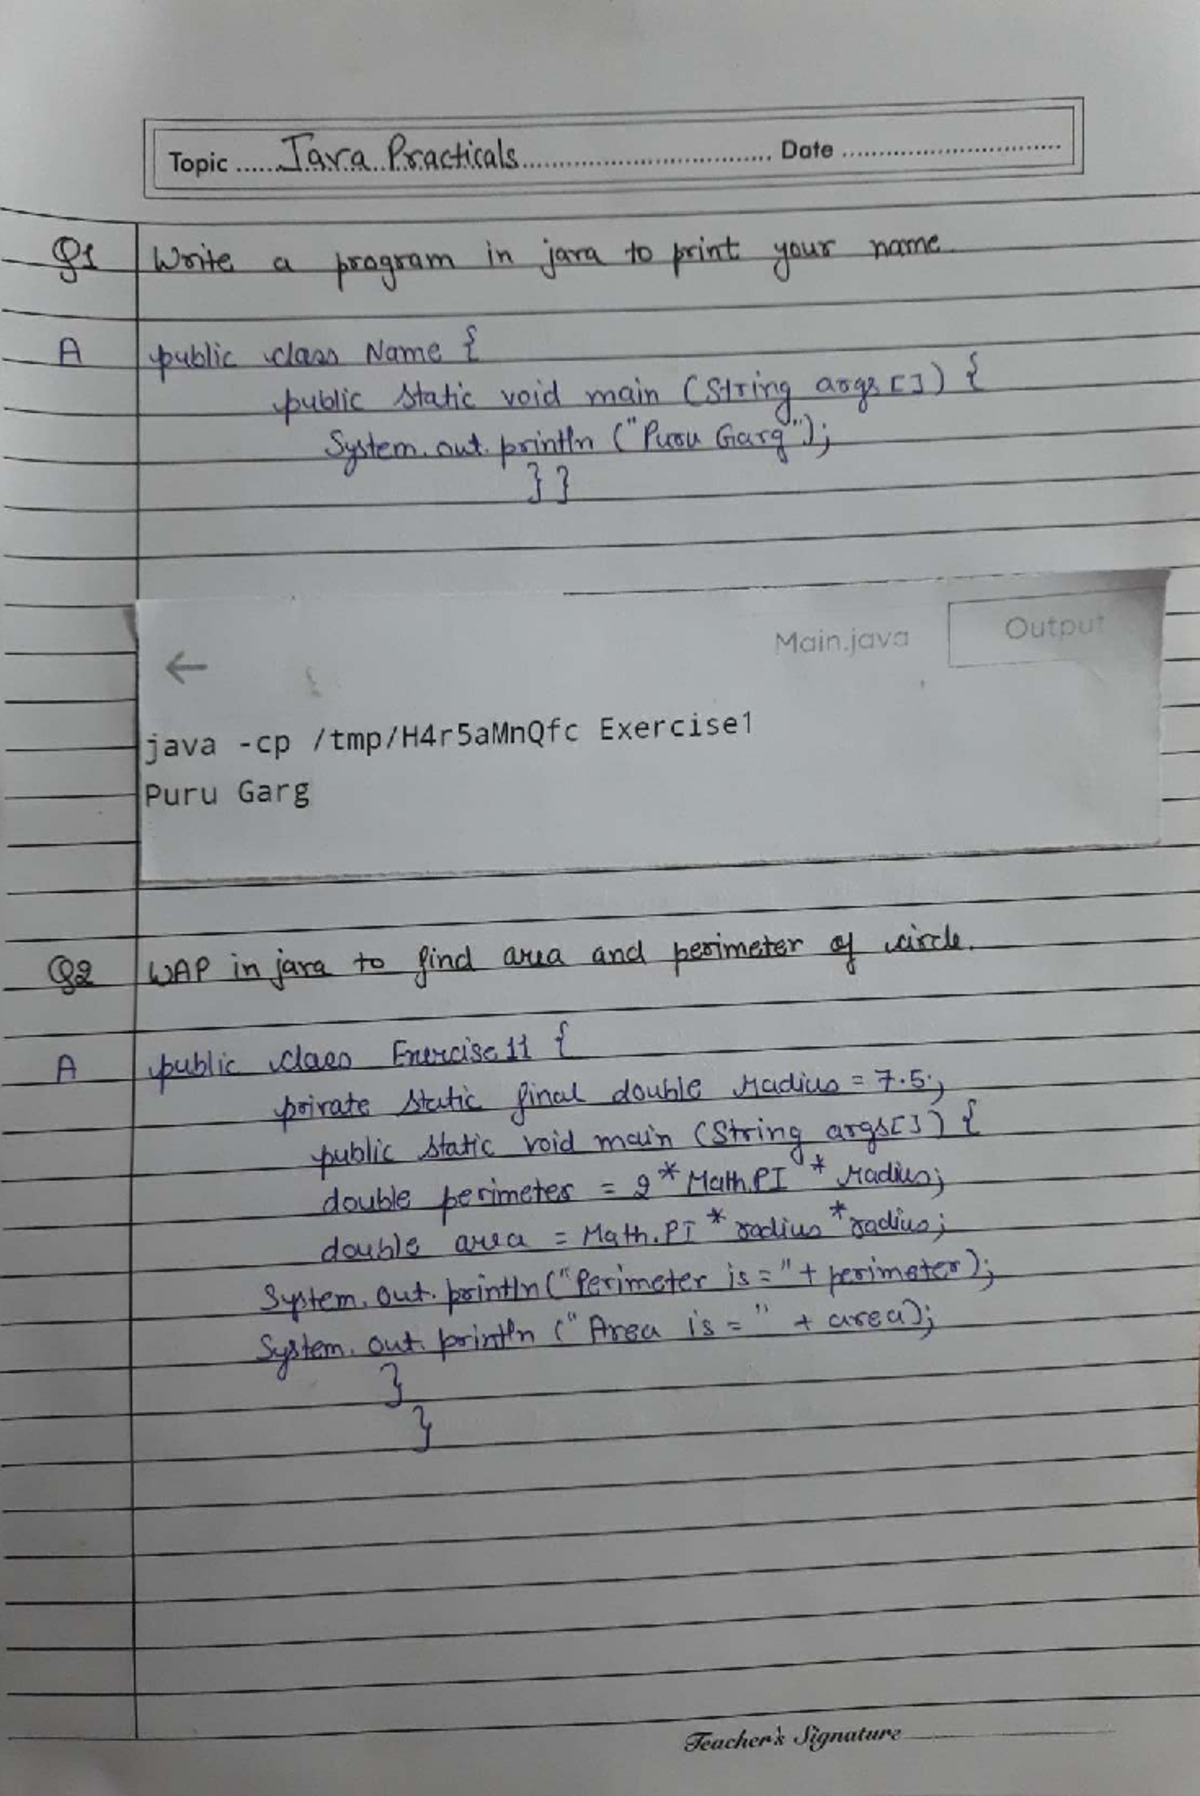 Topic ...... Java Practicals ................................ Date ..............................
Q1 Write a program in java to print your name
A public class Name {
public static void main (String args[]) {
System.out.println ("Puru Garg");
}}
← Main.java Output
java -cp /tmp/H4r5aMnQfc Exercise1
Puru Garg
Q2 WAP in java to find area and perimeter of circle.
A public class Exercise11 {
private static final double radius = 7.5;
public static void main (String args[]) {
double perimeter = 2 * Math.PI * radius;
double area = Math.PI * radius * radius;
System.out.println ("Perimeter is =" + perimeter);
System.out.println ("Area is = " + area);
}
}
Teacher's Signature